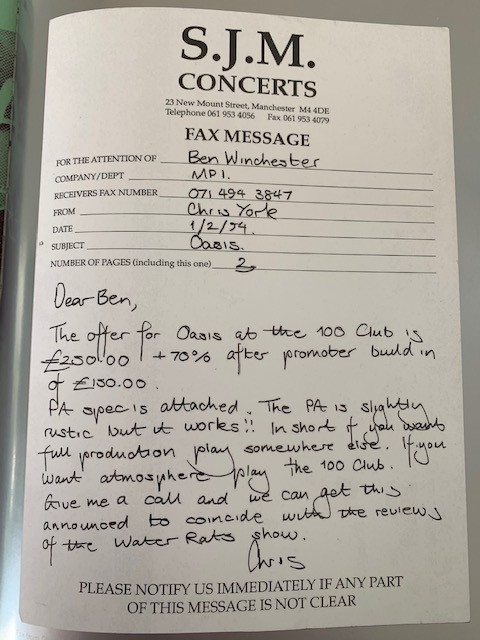 S.J.M.
CONCERTS
23 New Mount Street, Manchester M4 4DE
Telephone 061 953 4056 Fax 061 953 4079
FAX MESSAGE
FOR THE ATTENTION OF Ben Winchester
COMPANY/DEPT MPI.
RECEIVERS FAX NUMBER 071 494 3847
FROM Chris York
DATE 1/2/94.
SUBJECT Oasis.
NUMBER OF PAGES (including this one) 2
Dear Ben,
The offer for Oasis at the 100 Club is
£250.00 + 70% after promoter build in
of £150.00.
PA spec is attached. The PA is slightly
rustic but it works!! In short if you want
full production play somewhere else. If you
want atmosphere play the 100 Club.
Give me a call and we can get this
announced to coincide with the reviews
of the Water Rats show.
Chris
PLEASE NOTIFY US IMMEDIATELY IF ANY PART
OF THIS MESSAGE IS NOT CLEAR